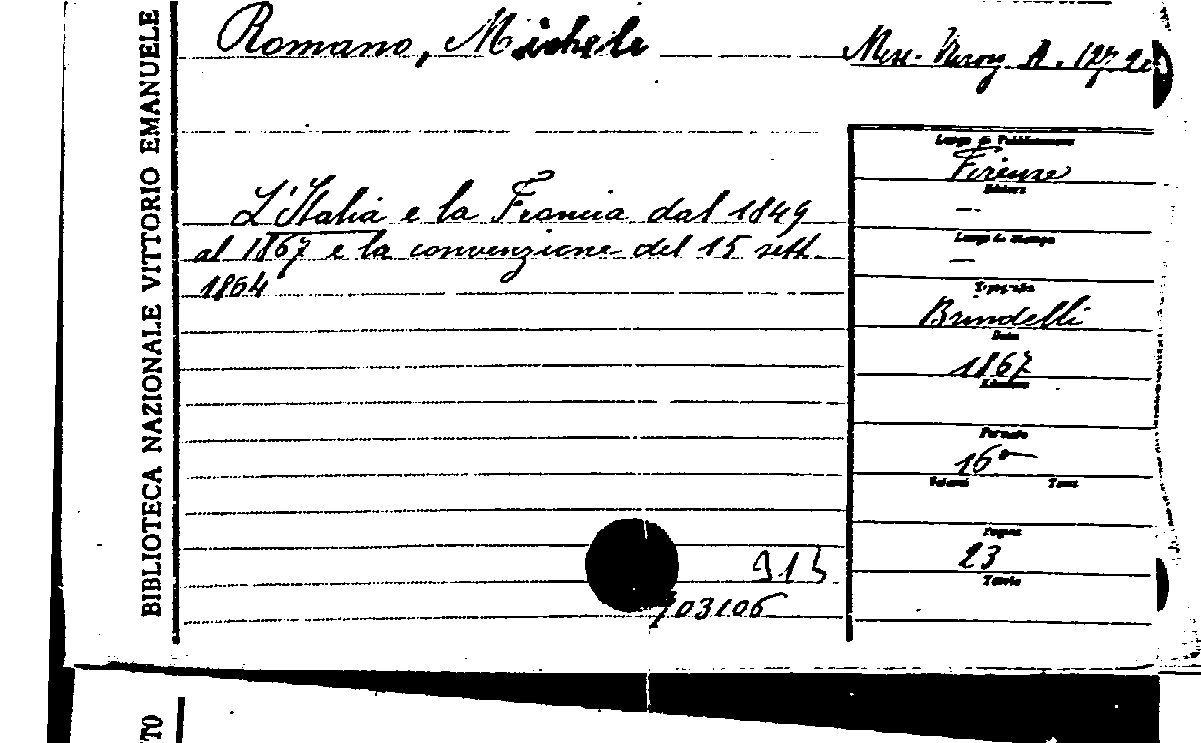 BIBLIOTECA NAZIONALE VITTORIO EMANUELE
Romano, Michele
A. 127.
L'Italia e la Francia dal 1849
al 1867 e la convenzione del 15 sett.
1864
Luogo di Pubblicazione
Firenze
Editore
—
Luogo di stampa
—
Tipografia
Brindelli
Data
1867
Edizione
Formato
16°
Volumi Tomi
Pagine
23
Tavole
913
703106
TO